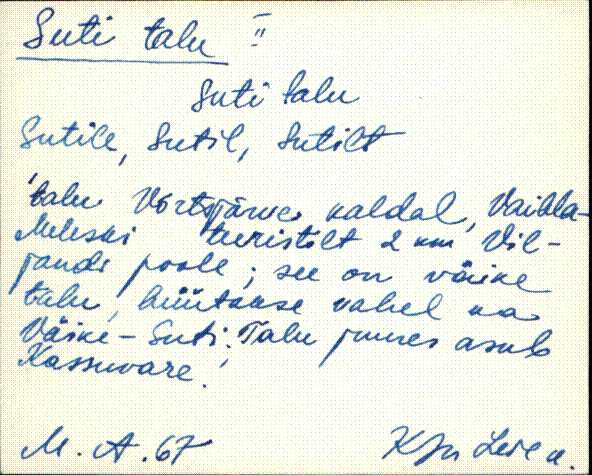 Suti talu II
Suti talu
Sutile, Sutil, Sutilt
talu Võrtsjärve kaldal, Vaibla-
Meleski teeristilt 2 km Vil-
jandi poole; see on väike
talu, hüütakse vahel ka
Väike-Suti. Talu juures asub
Kassuvare.
M. A. 67